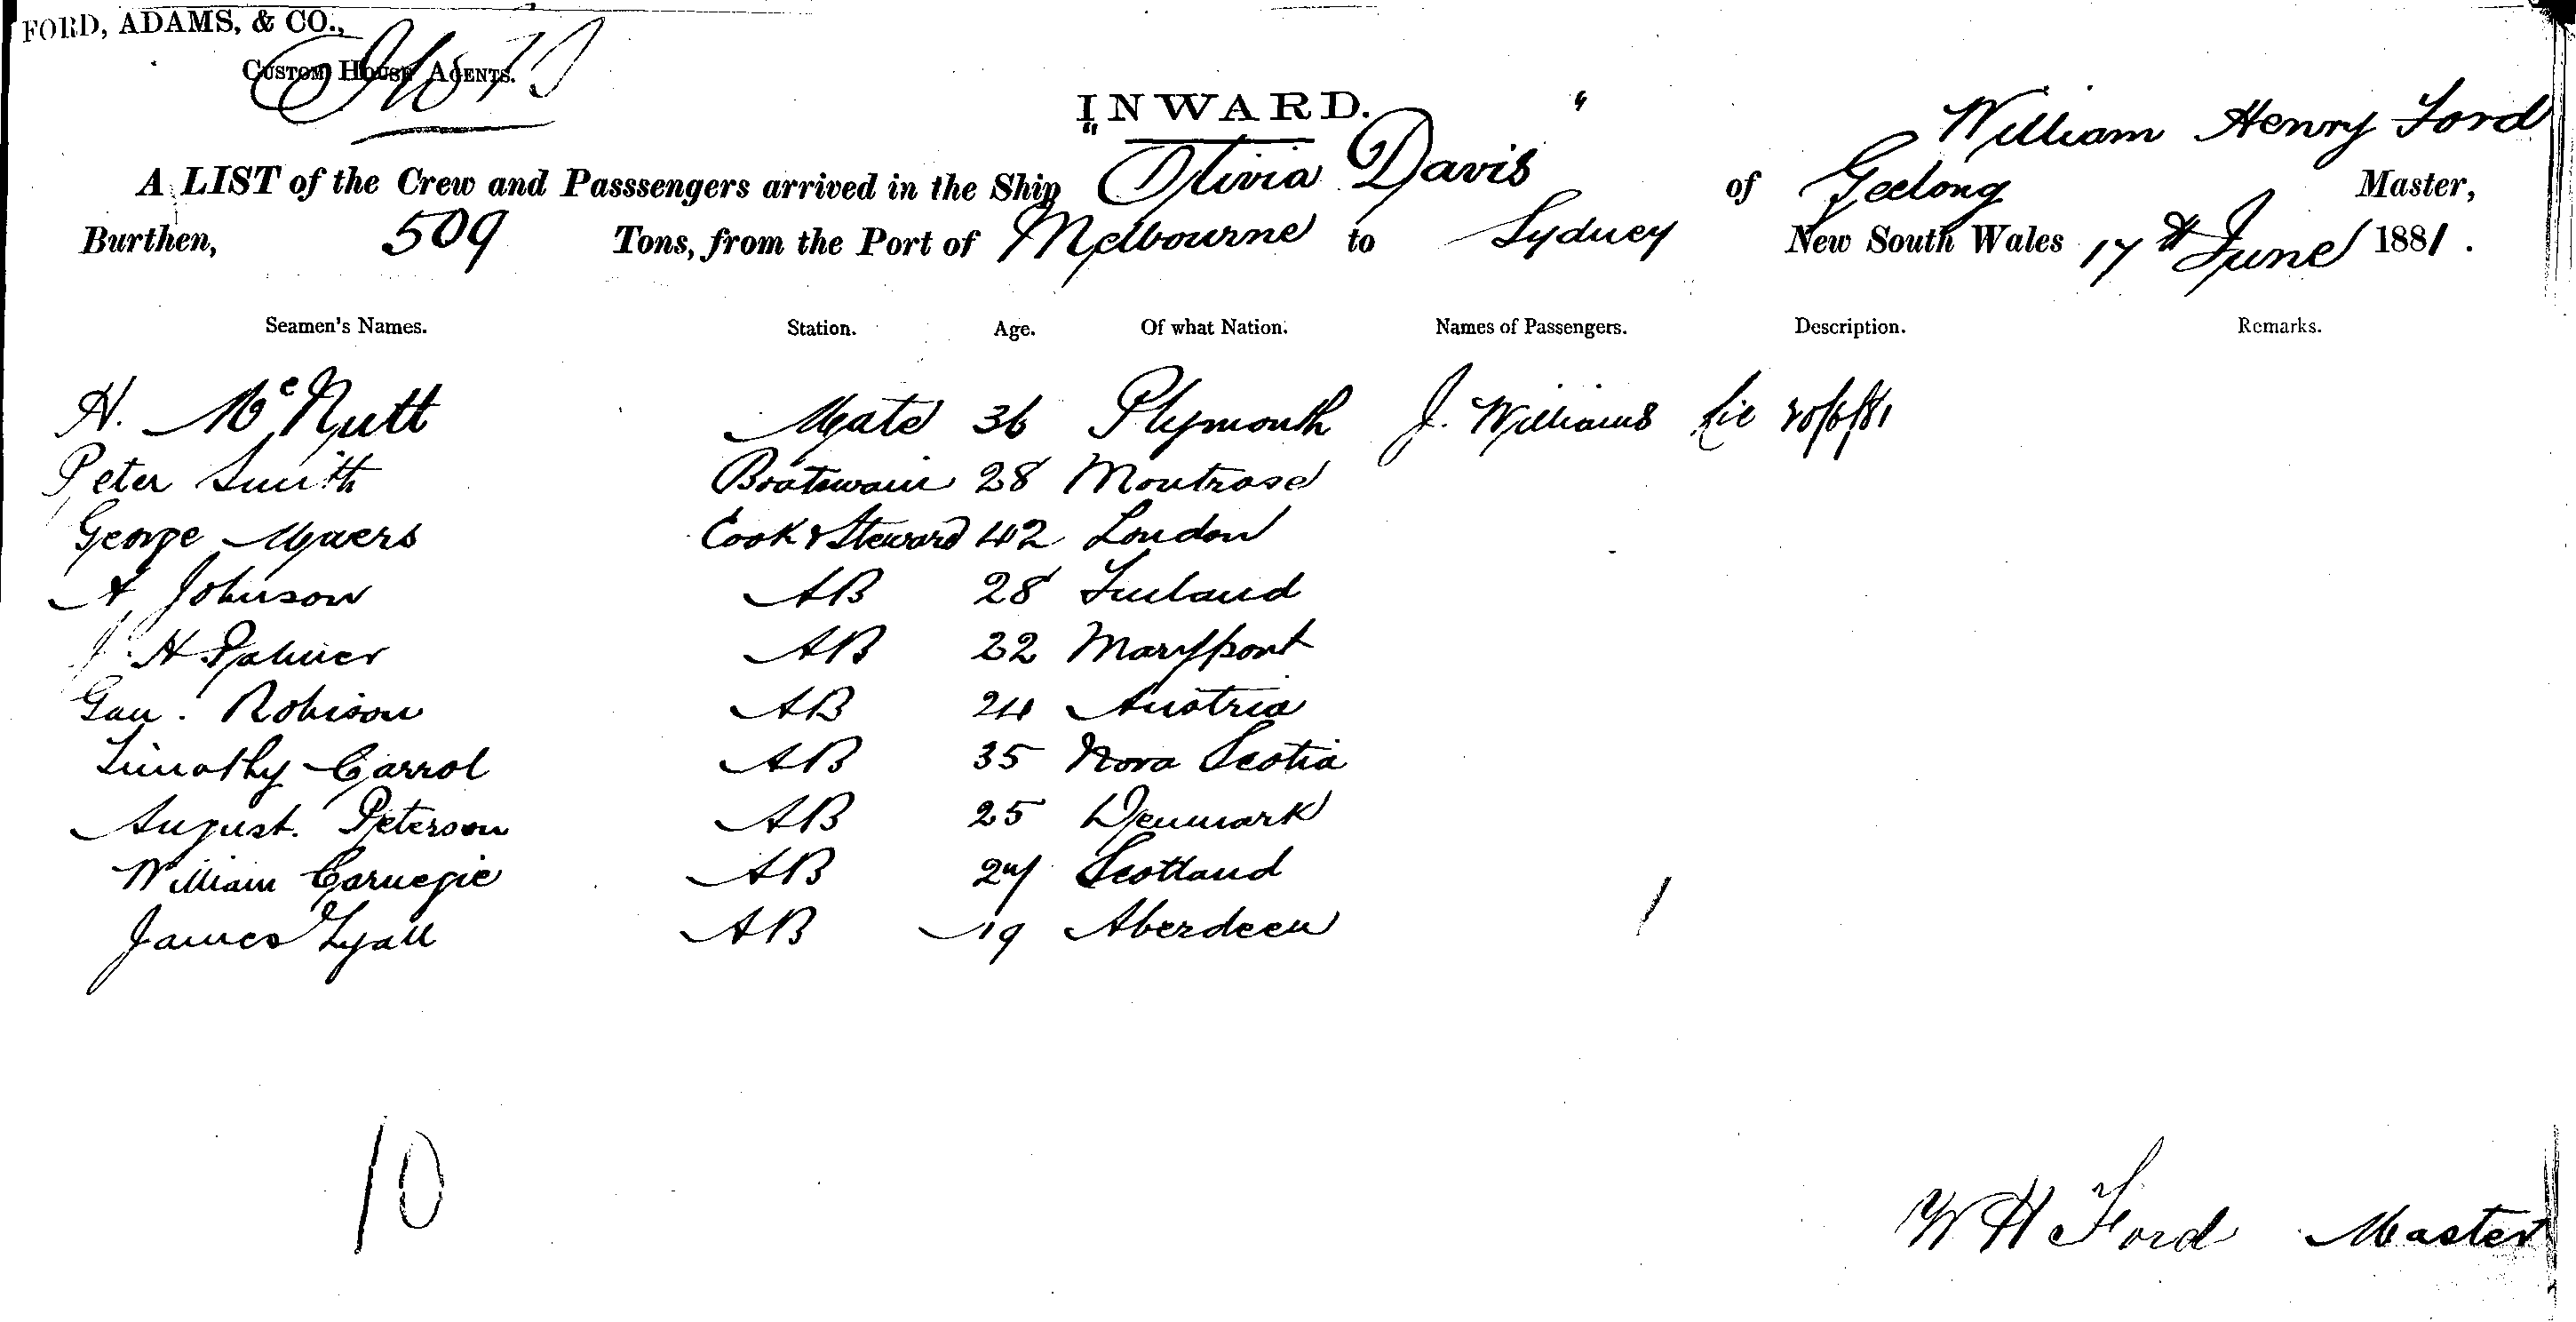 FORD, ADAMS, & CO.,
CUSTOM HOUSE AGENTS.
INWARD.
William Henry Ford
A LIST of the Crew and Passsengers arrived in the Ship "Olivia Davis" of Geelong Master,
Burthen, 509 Tons, from the Port of Melbourne to Sydney New South Wales 17th June 1881.
Seamen's Names. Station. Age. Of what Nation. Names of Passengers. Description. Remarks.
H. McNutt Mate 36 Plymouth J. Williams
Peter Smith Boatswain 28 Montrose
George Myers Cook & Steward 42 London
A Johnson AB 28 Finland
J. H Palmer AB 22 Maryport
Robison AB 24 Austria
Timothy Carrol AB 35 Nova Scotia
August. Peterson AB 25 Denmark
William Carnegie AB 27 Scotland
James Lyall AB 19 Aberdeen
1
10
W H Ford Master